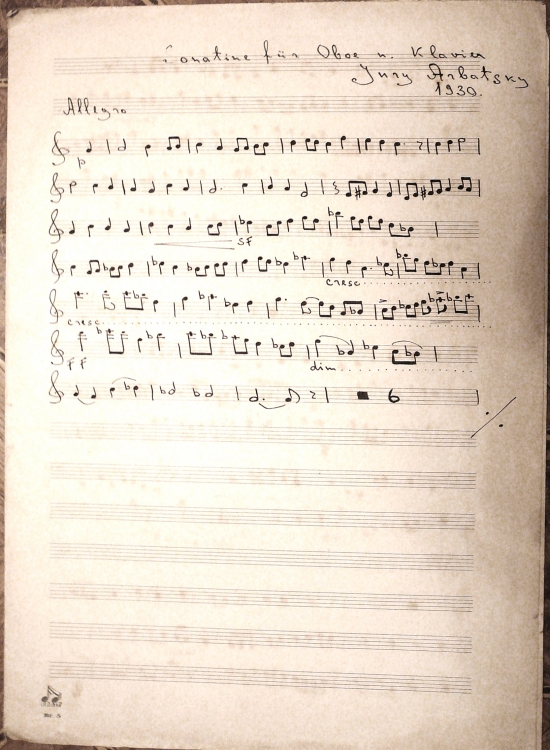 Sonatine für Oboe u. Klavier
Jury Arbatsky
1930.
Allegro
p
SF
cresc
cresc.
ff
dim
6